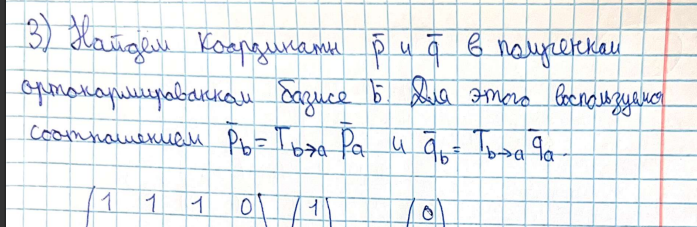 3) Найдём координаты p̄ и q̄ в полученном
ортонормированном базисе b̄. Для этого воспользуемся
соотношением p̄_b = T_b→a p̄_a и q̄_b = T_b→a q̄_a.
(1 1 1 0) (1) (0)